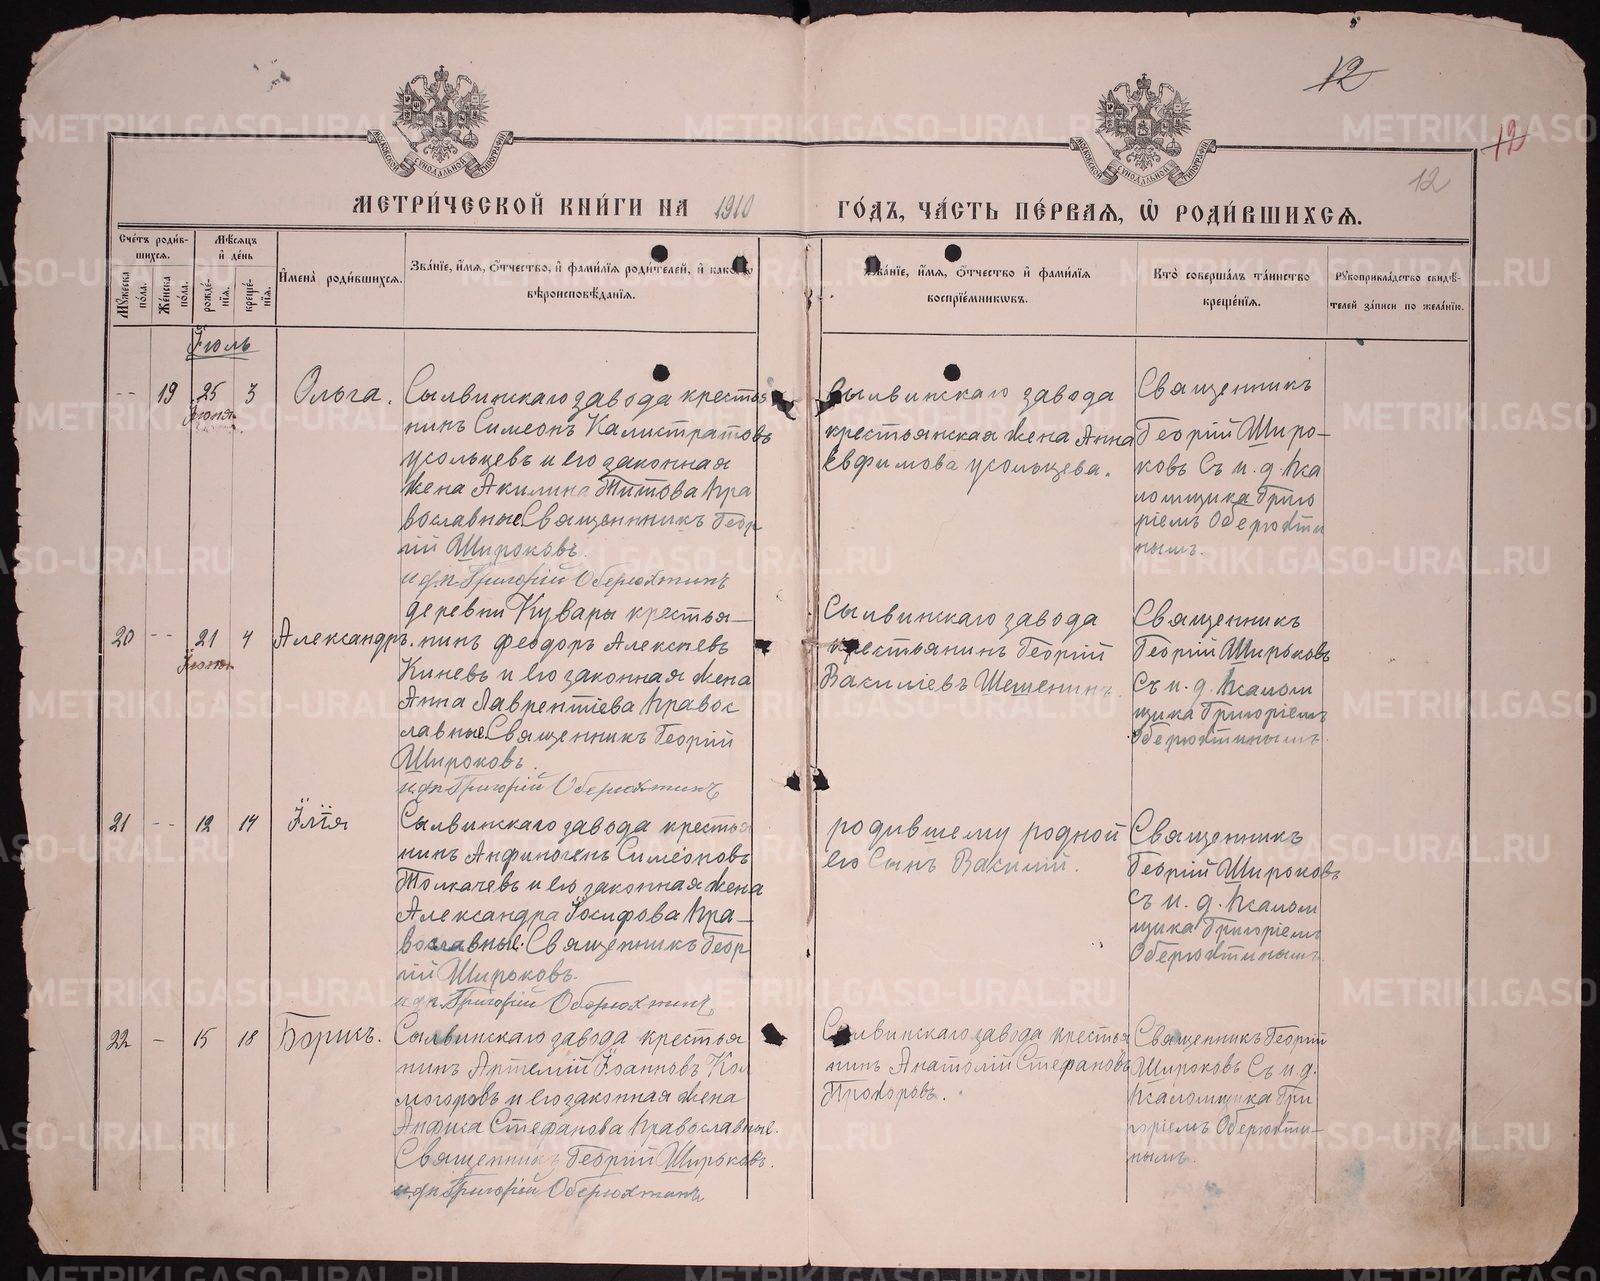 12
12
12
МОСКОВСКОЙ СѴНОДАЛЬНОЙ ТИПОГРАФІИ
МОСКОВСКОЙ СѴНОДАЛЬНОЙ ТИПОГРАФІИ
МЕТРИ́ЧЕСКОЙ КНИ́ГИ НА 1910 ГО́ДЪ, ЧА́СТЬ ПЕ́РВАЯ, Ѡ҆ РОДИ́ВШИХСЯ.
Сче́тъ роди́в-
шихся.
Мѣ́сяцъ
и҆ де́нь
Мꙋ́жеска
по́ла.
Же́нска
по́ла.
рожде́-
нїѧ.
креще́-
нїѧ.
И҆мена̀ роди́вшихся.
Зва́нїе, и҆́мя, ѻ҆́тчество, и҆ фами́лїя роди́телей, и҆ како́гѡ
вѣроисповѣ́данїя.
Зва́нїе, и҆́мя, ѻ҆́тчество и҆ фами́лїя
воспрїе́мникѡвъ.
Кто̀ соверша́лъ та́инство
креще́нїя.
Рꙋкоприкла́дство свидѣ́-
телей за́писи по жела́нїю.
Іюль
-- 19 25 3 Ольга.
Іюня
Сылвинскаго завода крестья
нинъ Симеонъ Калистратовъ
Усольцевъ и его законная
жена Акилина Титова пра
вославные Священникъ Геор
гій Широковъ.
и д п Григорій Оберюхтинъ
Сылвинскаго завода
крестьянская жена Анна
Евфимова Усольцева.
Священникъ
Георгій Широ-
ковъ Съ и. д. Пса
ломщика Григо
ріемъ Оберюхти
нымъ.
20 -- 21 4 Александръ.
Іюня
деревни Кувары крестья-
нинъ Феодоръ Алексѣевъ
Киневъ и его законная жена
Анна Лаврентіева правос
лавные Священникъ Георгій
Широковъ.
и д п Григорій Оберюхтинъ
Сылвинскаго завода
крестьянинъ Георгій
Василіевъ Шешенинъ.
Священникъ
Георгій Широковъ
Съ и. д. Псалом
щика Григоріемъ
Оберюхтинымъ.
21 -- 12 14 Илія
Сылвинскаго завода крестья
нинъ Анфиногенъ Симеоновъ
Толкачевъ и его законная жена
Александра Іосифова пра-
вославные. Священникъ Геор
гій Широковъ.
и д п Григорій Оберюхтинъ
родившему родной
его Сынъ Василій.
Священникъ
Георгій Широковъ
съ и. д. Псалом
щика Григоріемъ
Оберюхтинымъ
22 - 15 18 Борисъ.
Сылвинскаго завода крестья
нинъ Артемій Іоанновъ Кол
могоровъ и его законная жена
Анфиса Стефанова православные.
Священникъ Георгій Широковъ.
и.д п Григорій Оберюхтинъ
Сылвинскаго завода крестья
нинъ Анатолій Стефановъ
Прохоровъ.
Священникъ Георгій
Широковъ Съ и д.
Псаломщика Гри
горіемъ Оберюхти-
нымъ.
METRIKI.GASO-URAL.RU